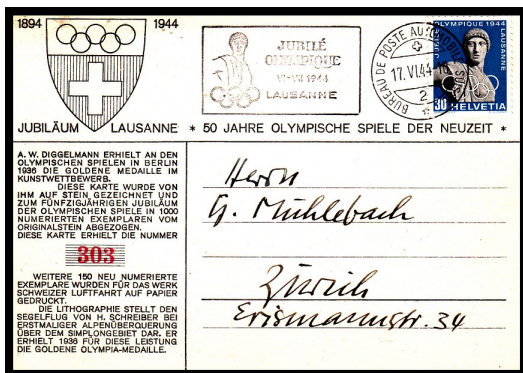 1894 1944
JUBILÄUM LAUSANNE * 50 JAHRE OLYMPISCHE SPIELE DER NEUZEIT *
JUBILÉ
OLYMPIQUE
VI-VII 1944
LAUSANNE
BUREAU DE POSTE AUTOMOBILE SUISSE
17.VI.44
2
OLYMPIQUE 1944
LAUSANNE
30 HELVETIA
A. W. DIGGELMANN ERHIELT AN DEN
OLYMPISCHEN SPIELEN IN BERLIN
1936 DIE GOLDENE MEDAILLE IM
KUNSTWETTBEWERB.
DIESE KARTE WURDE VON
IHM AUF STEIN GEZEICHNET UND
ZUM FÜNFZIGJÄHRIGEN JUBILÄUM
DER OLYMPISCHEN SPIELE IN 1000
NUMERIERTEN EXEMPLAREN VOM
ORIGINALSTEIN ABGEZOGEN.
DIESE KARTE ERHIELT DIE NUMMER
303
WEITERE 150 NEU NUMERIERTE
EXEMPLARE WURDEN FÜR DAS WERK
SCHWEIZER LUFTFAHRT AUF PAPIER
GEDRUCKT.
DIE LITHOGRAPHIE STELLT DEN
SEGELFLUG VON H. SCHREIBER BEI
ERSTMALIGER ALPENÜBERQUERUNG
ÜBER DEM SIMPLONGEBIET DAR. ER
ERHIELT 1936 FÜR DIESE LEISTUNG
DIE GOLDENE OLYMPIA-MEDAILLE.
Herrn
G. Mühlebach
Zürich
Erismannstr. 34